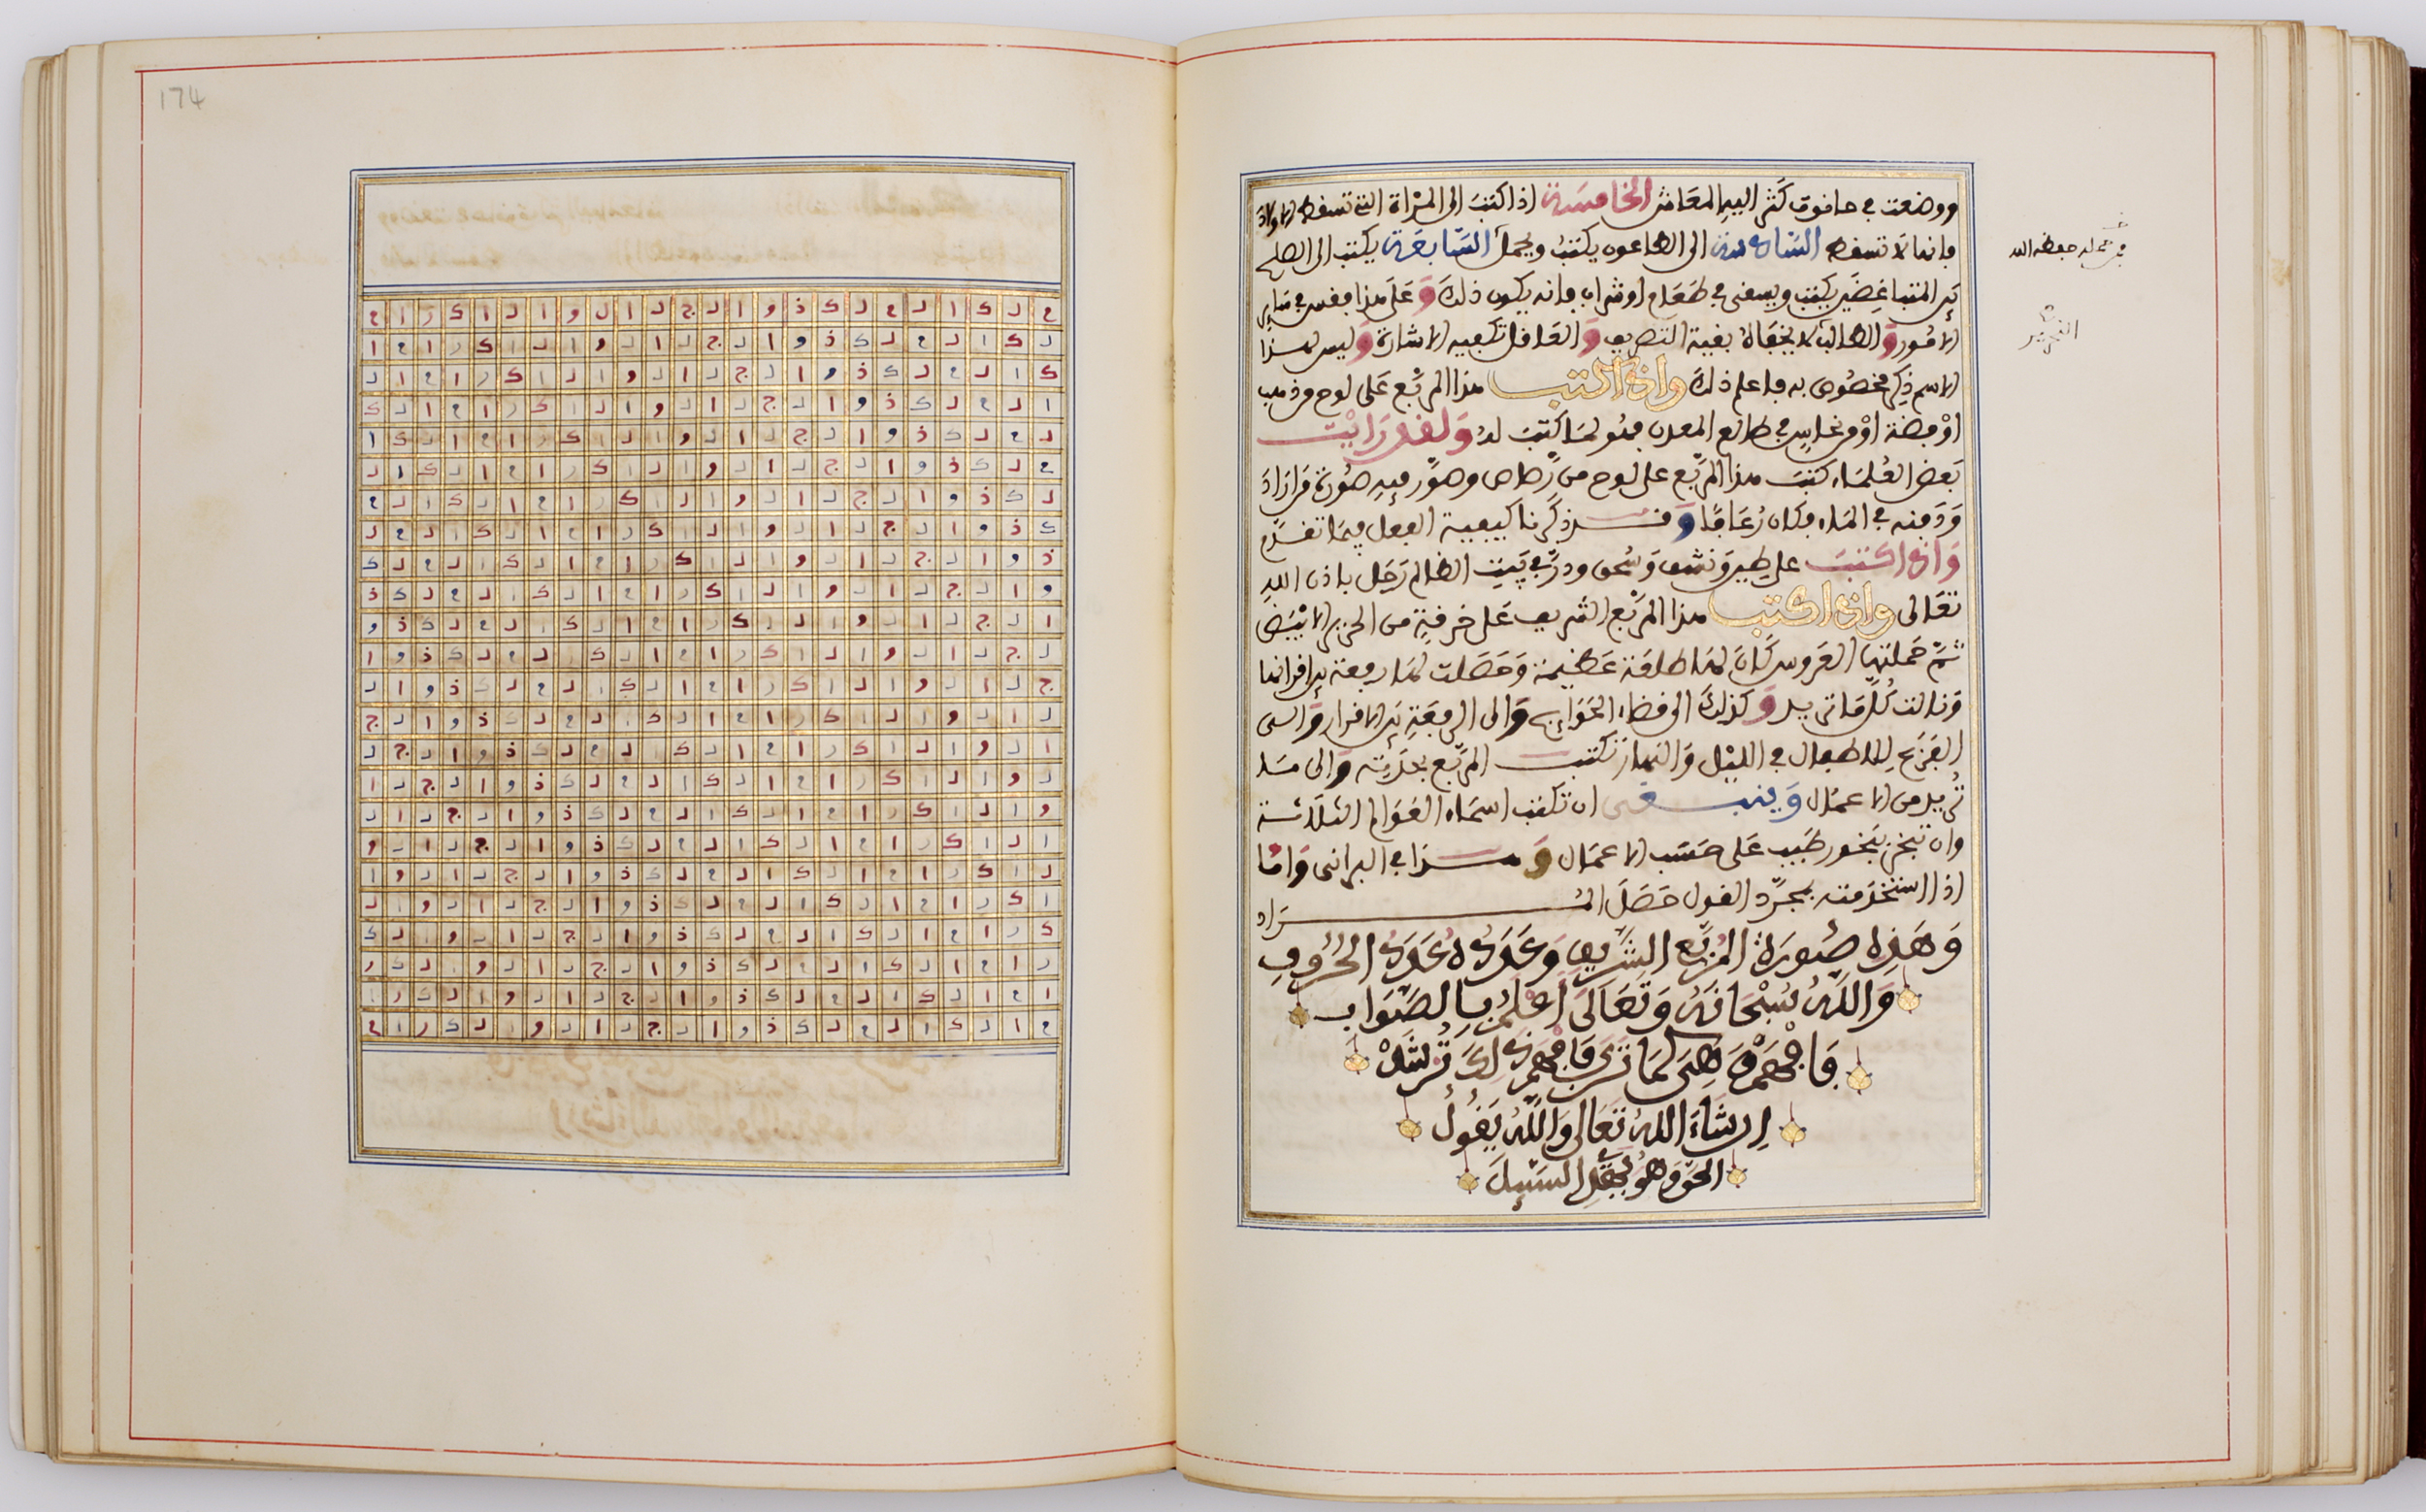 ووضعت في حانوت كثر اليه المعاش الخامسة اذا كتب الى المرأة التي تسقط الاولاد
فانها لا تسقط السادسة الى الطاعون يكتب ويحمل السابعة يكتب الى الصلح
بين المتباغضين يكتب ويسقى في طعام او شراب فانه يكون ذلك وعلى هذا فقس في سائر
الامور والطالب لا يخفاه بقية التصريف والعاقل تكفيه الاشارة وليس لهذا
الاسم ذكر مخصوص به فاعلم ذلك واذا كتب هذا المربع على لوح من ذهب
او فضة او من نحاس في طالع المعدن فهو لما كتب له ولقد رايت
بعض العلماء كتب هذا المربع على لوح من رصاص وصور فيه صورة من اراد
ودفنه في الماء فكان رعافا وقد ذكرنا كيفية الفعل فيما تقدم
واذا كتب على طير ونشف وسحق ودر في بيت الظالم رحل باذن الله
تعالى واذا كتب هذا المربع الشريف على خرقة من الحرير الابيض
ثم حملتها العروس كان لها طلعة عظيمة وحصلت لها رفعة بين اقرانها
ونالت كل ما تريد وكذلك الى قضاء الحوايج والى الرفعة بين الاقران والى
الفزع للاطفال في الليل والنهار تكتب المربع بحذيته والى مثل
تريد من الاعمال وينبغي ان تكتب اسماء العوالم الثلاثة
وان تبخر ببخور طيب على حسب الاعمال وهذا في البراني واما
اذا استخدمته بمجرد القول حصل المراد
وهذه صورة المربع الشريف وعدده عدد الحروف
والله سبحانه وتعالى اعلم بالصواب
فافهم وهي كما ترى فافهم ذلك ترشد
ان شاء الله تعالى والله يقول
الحق وهو يهدي السبيل
174
م ل ك ا ل م ل ك ذ و ا ل ج ل ا ل و ا ل ا ك ر ا م
ل ك ا ل م ل ك ذ و ا ل ج ل ا ل و ا ل ا ك ر ا م ا
ك ا ل م ل ك ذ و ا ل ج ل ا ل و ا ل ا ك ر ا م ا ل
ا ل م ل ك ذ و ا ل ج ل ا ل و ا ل ا ك ر ا م ا ل ك
ل م ل ك ذ و ا ل ج ل ا ل و ا ل ا ك ر ا م ا ل ك ا
م ل ك ذ و ا ل ج ل ا ل و ا ل ا ك ر ا م ا ل ك ا ل
ل ك ذ و ا ل ج ل ا ل و ا ل ا ك ر ا م ا ل ك ا ل م
ك ذ و ا ل ج ل ا ل و ا ل ا ك ر ا م ا ل ك ا ل م ل
ذ و ا ل ج ل ا ل و ا ل ا ك ر ا م ا ل ك ا ل م ل ك
و ا ل ج ل ا ل و ا ل ا ك ر ا م ا ل ك ا ل م ل ك ذ
ا ل ج ل ا ل و ا ل ا ك ر ا م ا ل ك ا ل م ل ك ذ و
ل ج ل ا ل و ا ل ا ك ر ا م ا ل ك ا ل م ل ك ذ و ا
ج ل ا ل و ا ل ا ك ر ا م ا ل ك ا ل م ل ك ذ و ا ل
ل ا ل و ا ل ا ك ر ا م ا ل ك ا ل م ل ك ذ و ا ل ج
ا ل و ا ل ا ك ر ا م ا ل ك ا ل م ل ك ذ و ا ل ج ل
ل و ا ل ا ك ر ا م ا ل ك ا ل م ل ك ذ و ا ل ج ل ا
و ا ل ا ك ر ا م ا ل ك ا ل م ل ك ذ و ا ل ج ل ا ل
ا ل ا ك ر ا م ا ل ك ا ل م ل ك ذ و ا ل ج ل ا ل و
ل ا ك ر ا م ا ل ك ا ل م ل ك ذ و ا ل ج ل ا ل و ا
ا ك ر ا م ا ل ك ا ل م ل ك ذ و ا ل ج ل ا ل و ا ل
ك ر ا م ا ل ك ا ل م ل ك ذ و ا ل ج ل ا ل و ا ل ك
ر ا م ا ل ك ا ل م ل ك ذ و ا ل ج ل ا ل و ا ل ك ر
ا م ا ل ك ا ل م ل ك ذ و ا ل ج ل ا ل و ا ل ك ر ا
م ا ل ك ا ل م ل ك ذ و ا ل ج ل ا ل و ا ل ك ر ا م